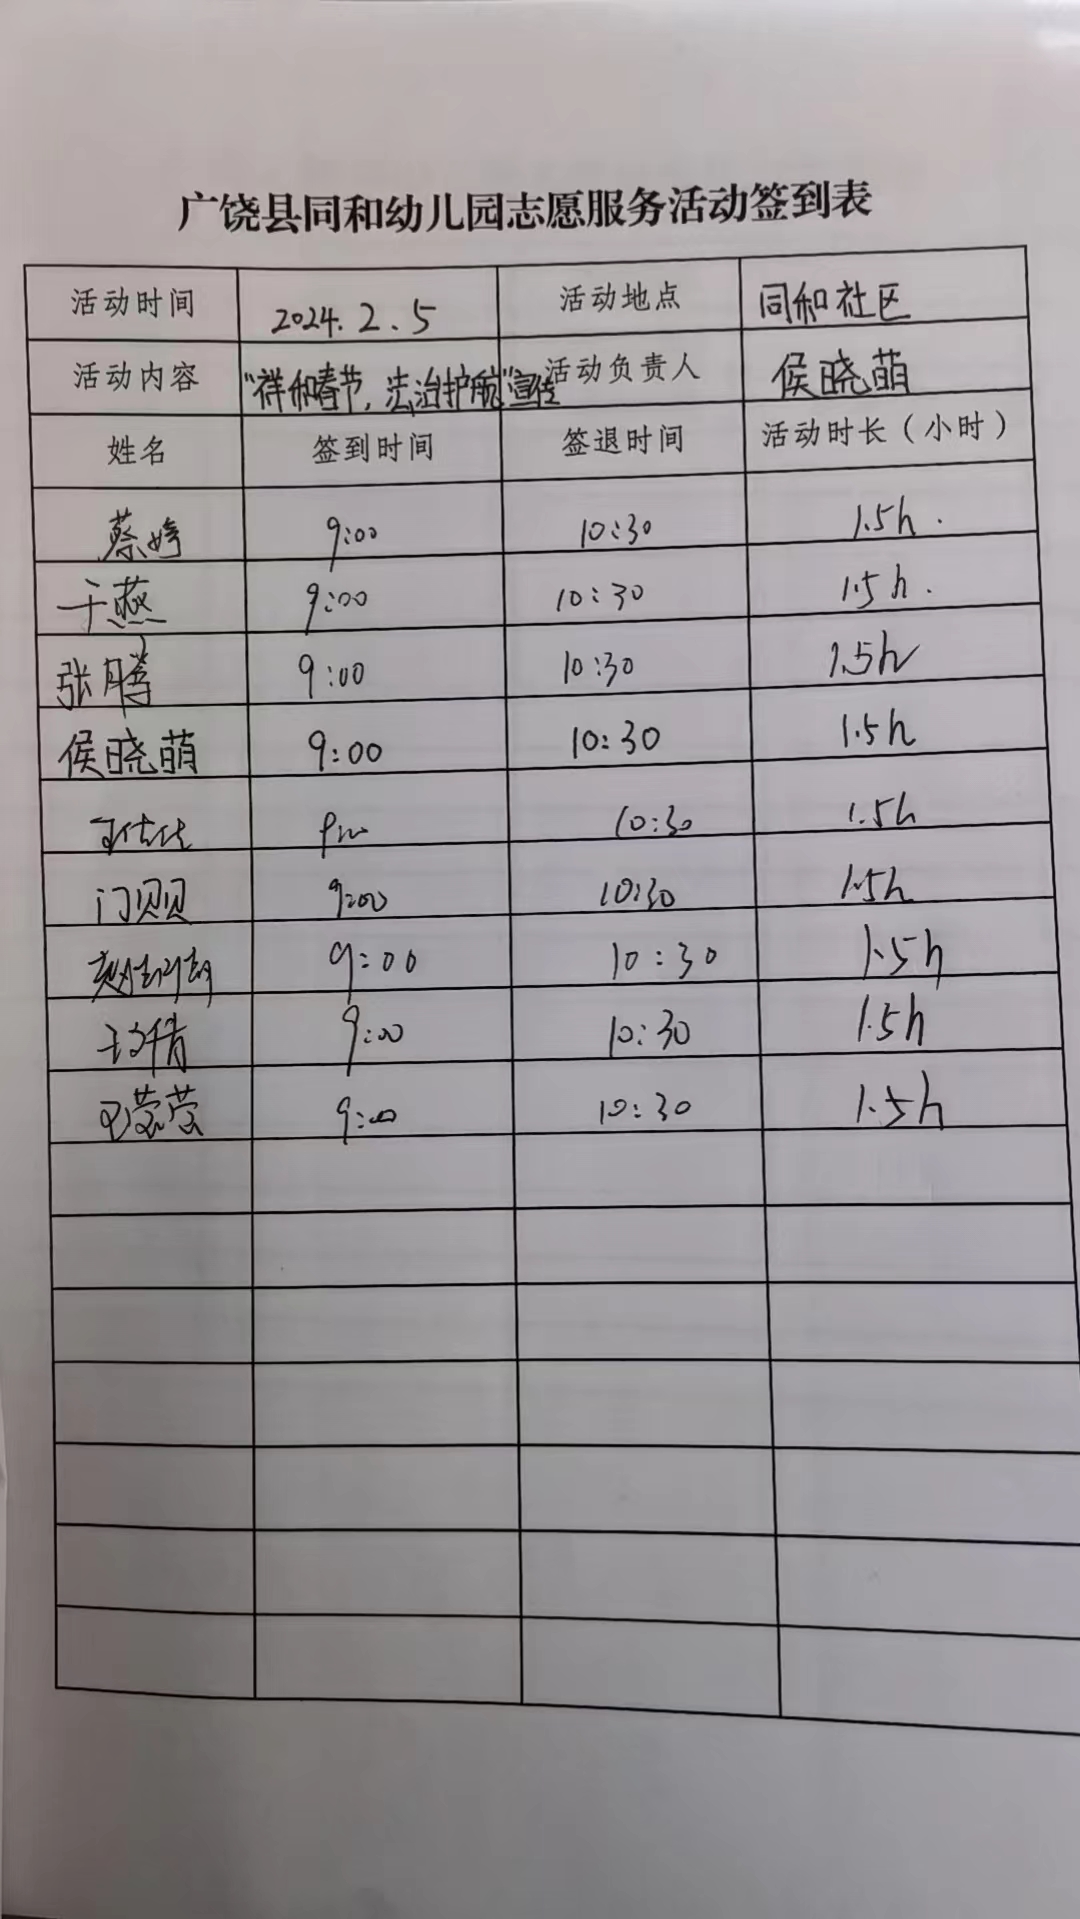 广饶县同和幼儿园志愿服务活动签到表
活动时间 2024.2.5 活动地点 同和社区
活动内容 "祥和春节，法治护航"宣传 活动负责人 侯晓萌
姓名 签到时间 签退时间 活动时长（小时）
蔡婷 9:00 10:30 1.5h.
于燕 9:00 10:30 1.5h.
张腾 9:00 10:30 1.5h
侯晓萌 9:00 10:30 1.5h
10:30 1.5h
门贝贝 9:00 10:30 1.5h
9:00 10:30 1.5h
9:00 10:30 1.5h
莹莹 9:00 10:30 1.5h